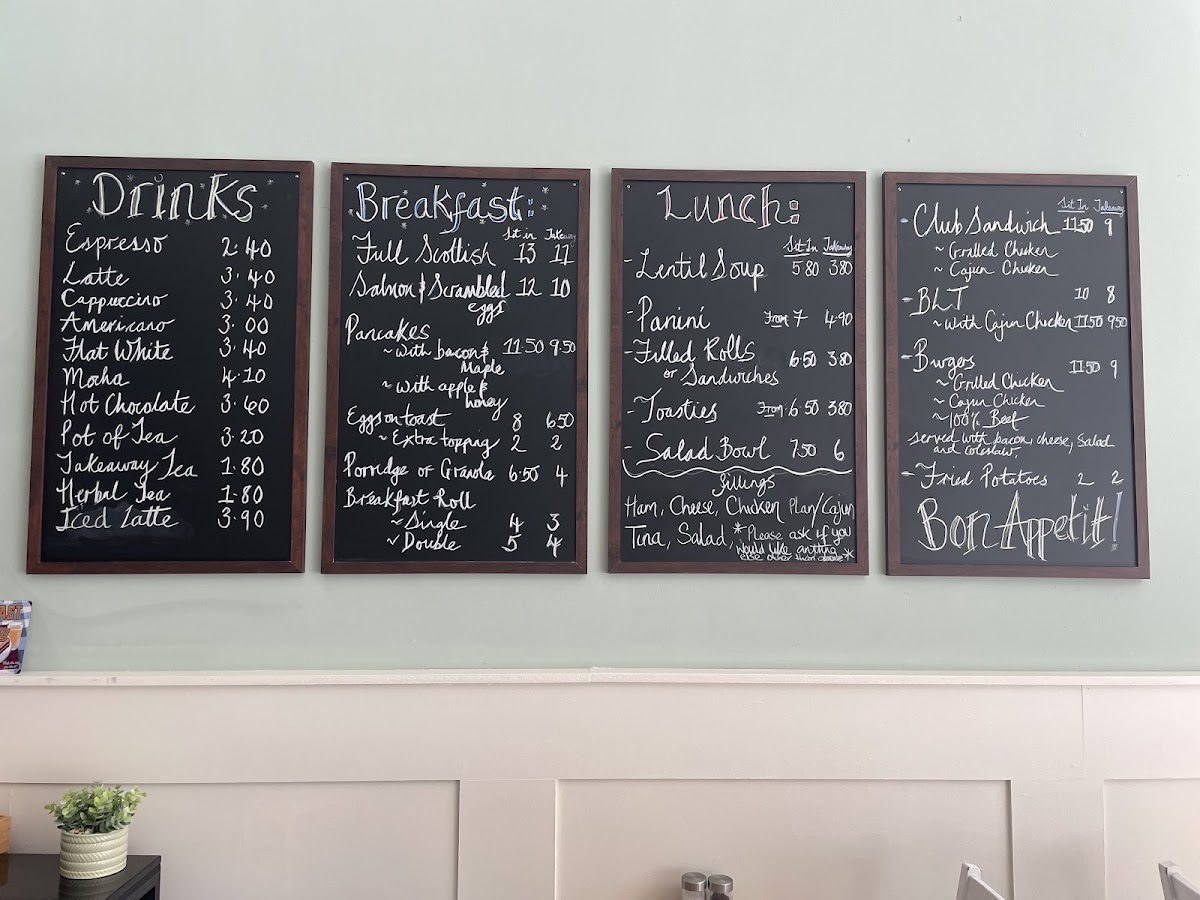 Drinks
Espresso 2.40
Latte 3.40
Cappuccino 3.40
Americano 3.00
Flat White 3.40
Mocha 4.10
Hot Chocolate 3.60
Pot of Tea 3.20
Takeaway Tea 1.80
Herbal Tea 1.80
Iced Latte 3.90
Breakfast:
Sit in Takeaway
Full Scottish 13 11
Salmon & Scrambled 12 10
eggs
Pancakes
~ with bacon & 11.50 9.50
Maple
~ with apple &
honey
Eggs on toast 8 6.50
~ Extra topping 2 2
Porridge or Granola 6.50 4
Breakfast Roll
~ Single 4 3
~ Double 5 4
Lunch:
Sit In Takeaway
- Lentil Soup 5 80 3 80
- Panini From 7 4.90
- Filled Rolls 6.50 3 80
or Sandwiches
- Toasties From 6.50 3 80
- Salad Bowl 7 50 6
fillings
Ham, Cheese, Chicken Plan/Cajun
Tina, Salad, *Please ask if you
would like anything
else other than above*
Sit In Takeaway
- Club Sandwich 11 50 9
~ Grilled Chicken
~ Cajun Chicken
- BLT 10 8
~ with Cajun Chicken 11 50 9 50
- Burgers 11 50 9
~ Grilled Chicken
~ Cajun Chicken
~ 100% Beef
served with bacon, cheese, Salad
and coleslaw.
- Fried Potatoes 2 2
Bon Appetit!